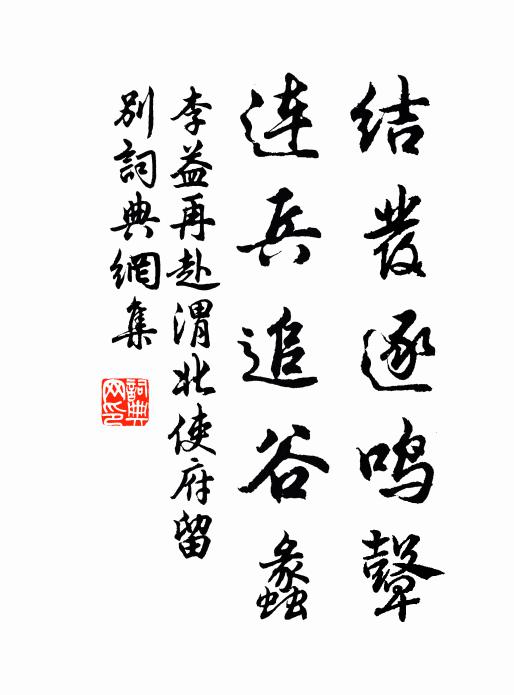 结发逐鸣鼙
连兵追谷蠡
李益再赴渭北使府留
别词典網集
詞典网印